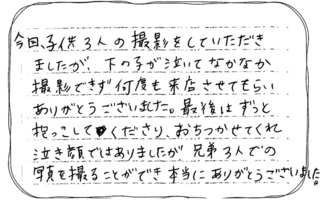 今回、子供3人の撮影をしていただき
ましたが、下の子が泣いてなかなか
撮影できず何度も来店させてもらい
ありがとうございました。最後はずっと
抱っこしてくださり、おちつかせてくれ
泣き顔ではありましたが兄弟3人での
写真を撮ることができ本当にありがとうございました。